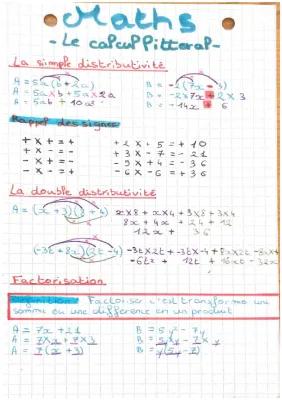 Maths
- Le calcul littéral -
La simple distributivité
A = 5a(b + 2a)
A = 5a x b + 5a x 2a
A = 5ab + 10a²
B = -2(7x - 3)
B = -2 x 7x + 2 x 3
B = -14x + 6
Rappel des signes
+ x + = +
+ x - = -
- x + = -
- x - = +
+ 2 x 5 = + 10
+ 3 x - 7 = - 21
- 9 x + 4 = - 36
- 6 x - 6 = + 36
La double distributivité
A = (x + 3)(8 + 4)
x x 8 + x x 4 + 3 x 8 + 3 x 4
8x + 4x + 24 + 12
12x + 36
(-3t + 8x)(2t - 4)
-3t x 2t + -3t x -4 + 8x x 2t - 8x x 4
-6t² + 12t + 16xt - 32x
Factorisation
Définition : Factoriser c'est transformer une
somme ou une différence en un produit
A = 7x + 21
A = 7 x x + 7 x 3
A = 7(x + 3)
B = 5y² - 7y
B = 5y x y - 7 x y
B = y(5y - 7)